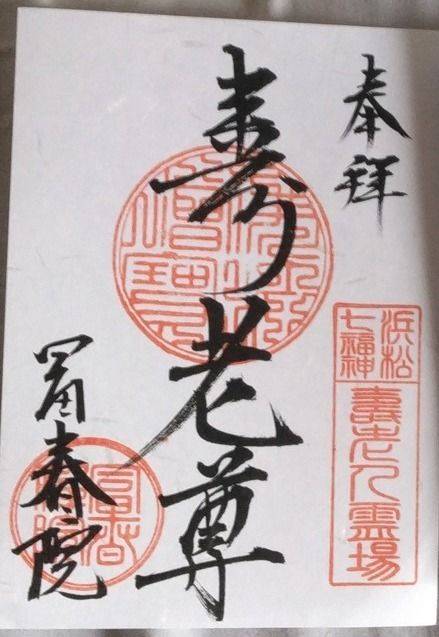 奉拝
浜松
七福神
壽老人霊場
寿老尊
富春院